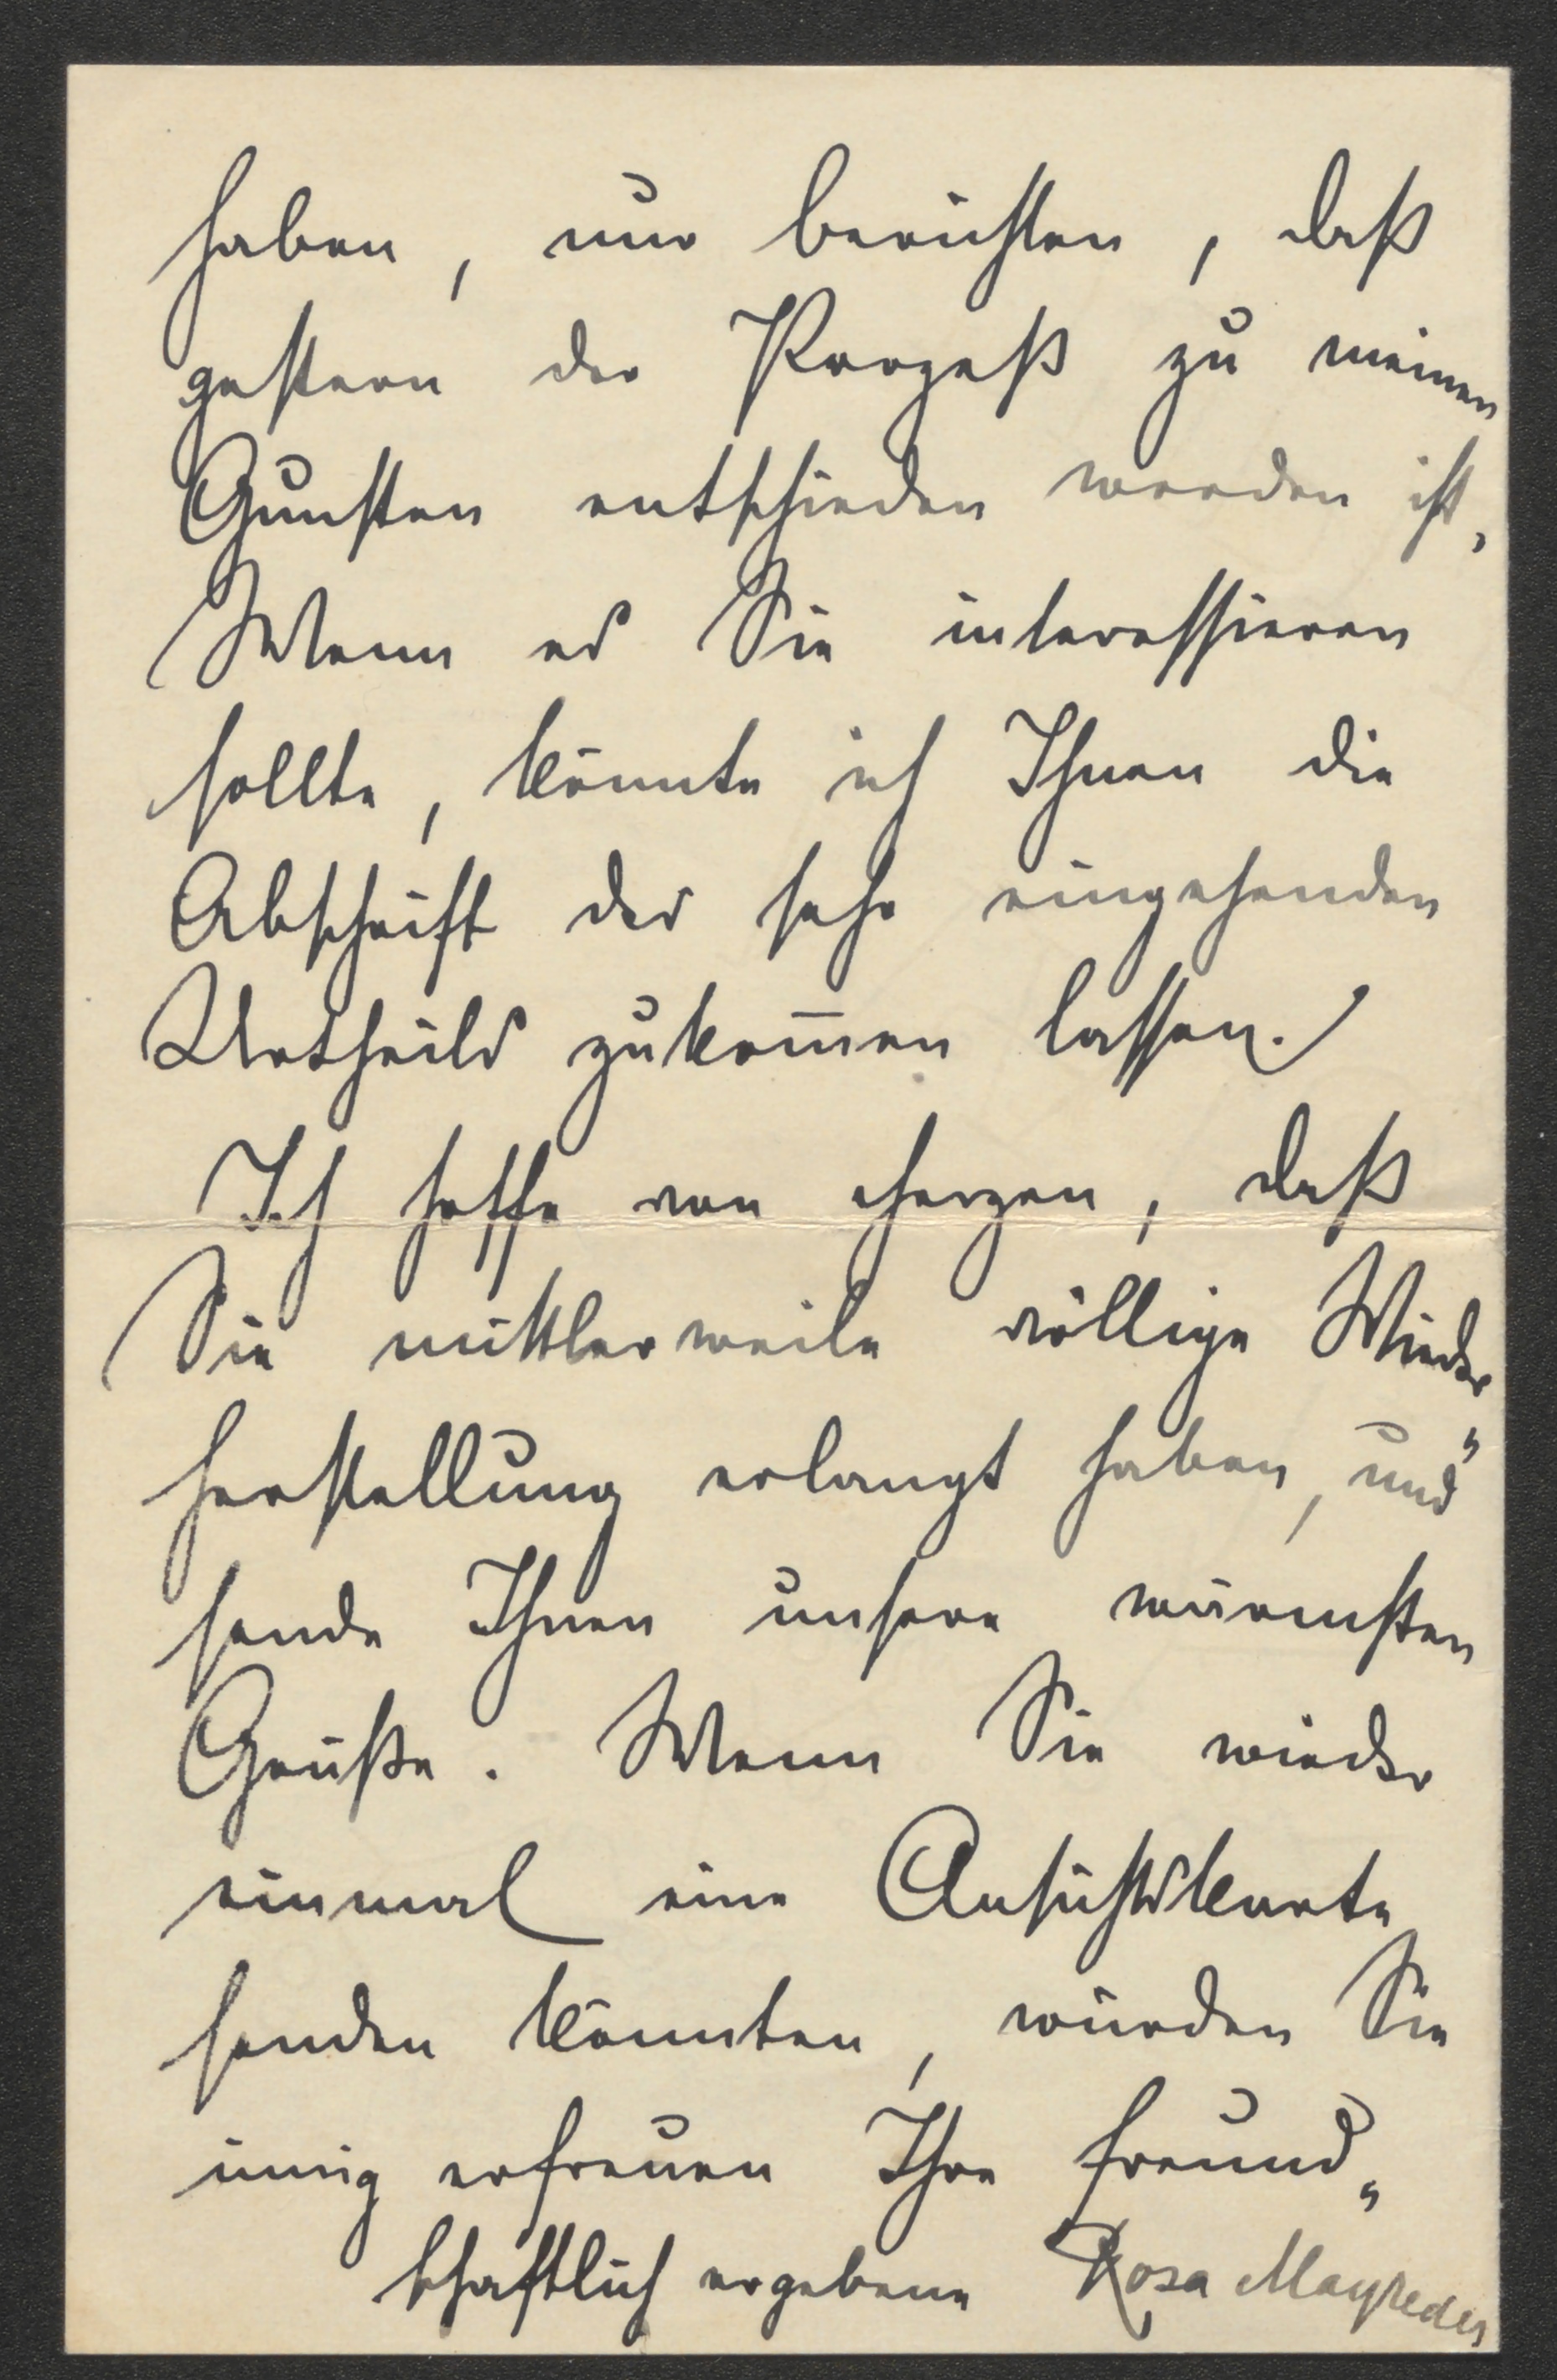 haben, nur berichten, daß
gestern der Prozeß zu meinen
Gunsten entschieden worden ist,
Wenn es Sie interessieren
sollte, könnte ich Ihnen die
Abschrift des sehr eingehenden
Urtheils zukom̅en lassen.
Ich hoffe von Herzen, daß
Sie mittlerweile völlige Wieder„
herstellung erlangt haben, und
sende Ihnen unsere wärmsten
Grüße. Wenn Sie wieder
einmal eine Ansichtskarte
senden könnten, würden Sie
innig erfreuen Ihre freund„
schaftlich ergebene Rosa Mayreder